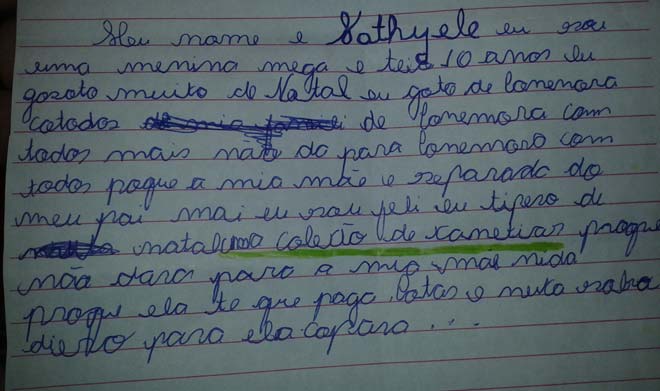 Meu name e Kathyele eu sou
uma menina mega e teis 10 anos eu
gosoto muito de Natal eu goto de comemora
cotodos de comemora com
todos mais não da para comemora com
todos poque a mia mãe e separada do
meu pai mai eu sou feli eu tipero de
natal uma coleção de canetias proque
não daros para a mia mae nida
proque ela te que paga cotas e muta sobra
dieiro para ela copara ...